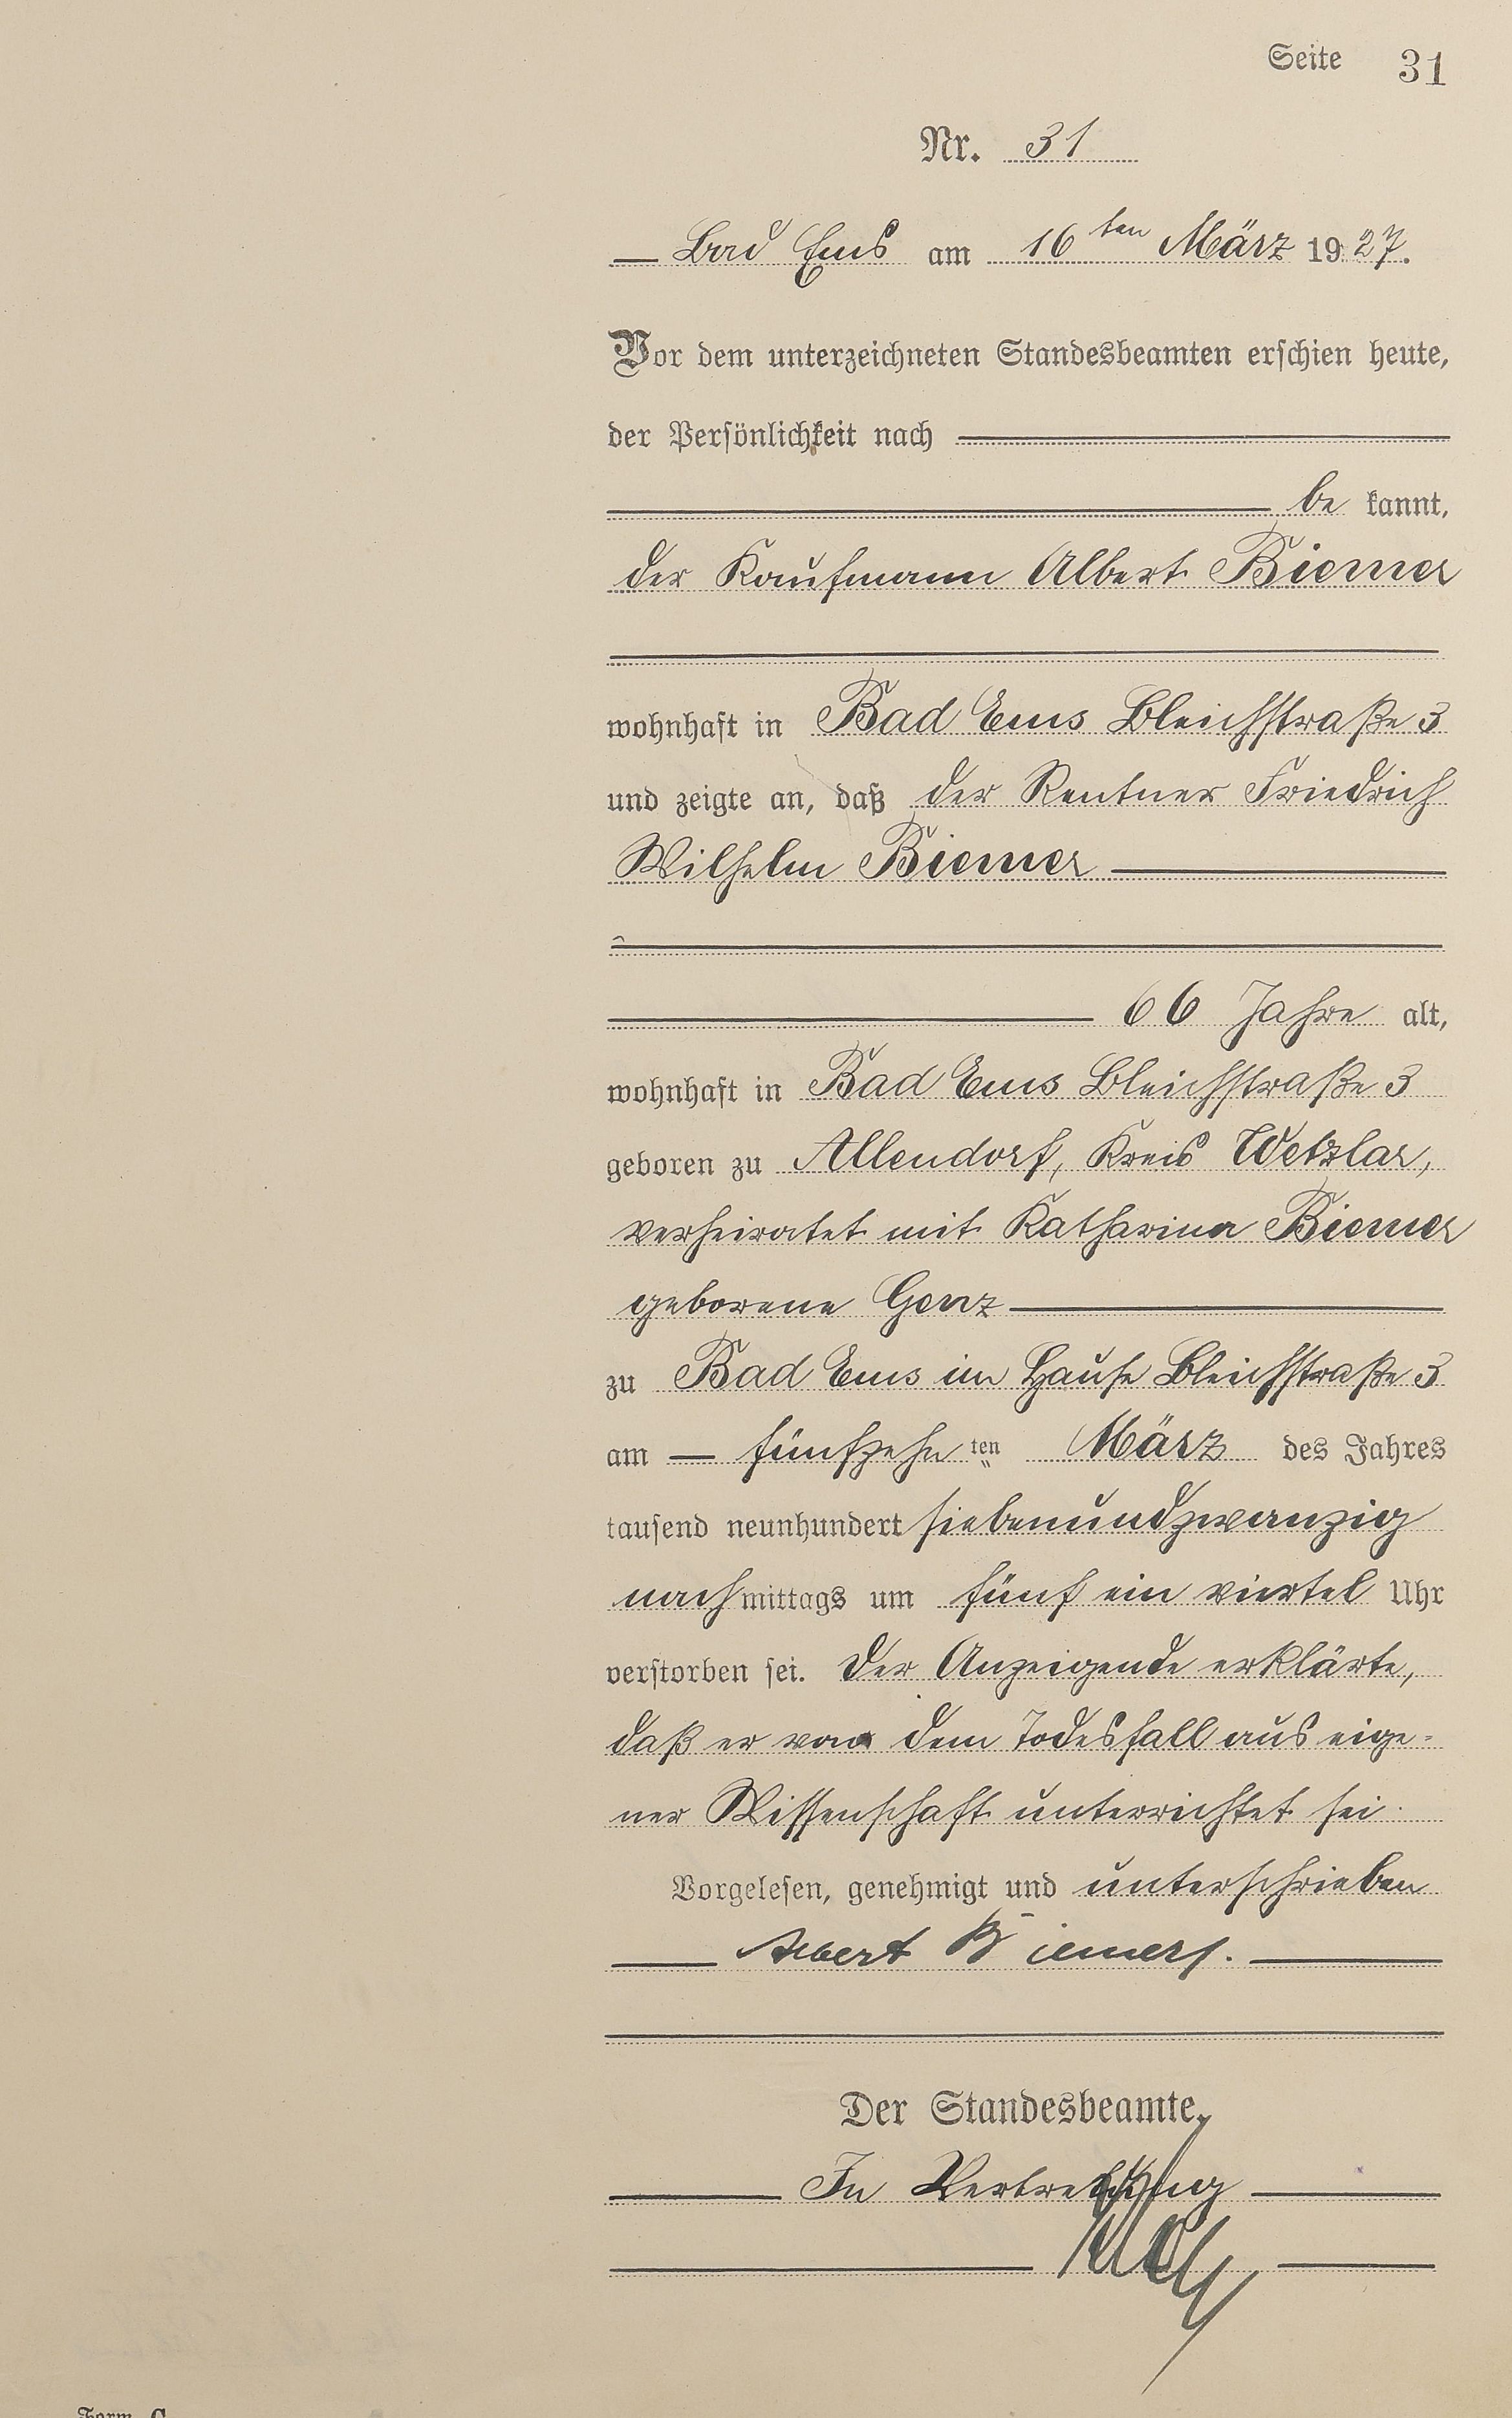 Seite 31
Nr. 31
Bad Ems am 16ten März 1927.
Vor dem unterzeichneten Standesbeamten erschien heute,
der Persönlichkeit nach
be kannt,
der Kaufmann Albert Biemer
wohnhaft in Bad Ems Bleichstraße 3
und zeigte an, daß der Rentner Friedrich
Wilhelm Biemer
66 Jahre alt,
wohnhaft in Bad Ems Bleichstraße 3
geboren zu Allendorf, Kreis Wetzlar,
verheiratet mit Katharina Biemer
geborene Genz
zu Bad Ems im Hause Bleichstraße 3
am fünfzehnten März des Jahres
tausend neunhundert siebenundzwanzig
nachmittags um fünf ein viertel Uhr
verstorben sei. Der Anzeigende erklärte,
daß er von dem Todesfall aus eige-
ner Wissenschaft unterrichtet sei.
Vorgelesen, genehmigt und unterschrieben
Albert Biemer.
Der Standesbeamte.
In Vertretung
Form. C